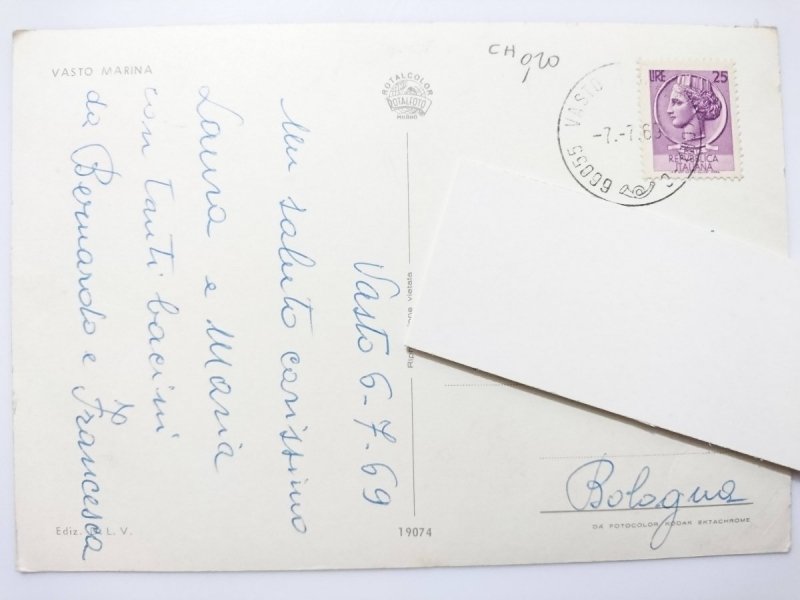 VASTO MARINA
Vasto 6-7-69
Un saluto carissimo
Laura e Maria
con tanti bacini
da Bernardo e Francesca
Ediz. L. V.
ROTALCOLOR
ROTALFOTO
MILANO
19074
CH 0,20
66055 VASTO
-7.-7.69
LIRE 25
REPUBBLICA
ITALIANA
vietata
Bologna
DA FOTOCOLOR KODAK EKTACHROME